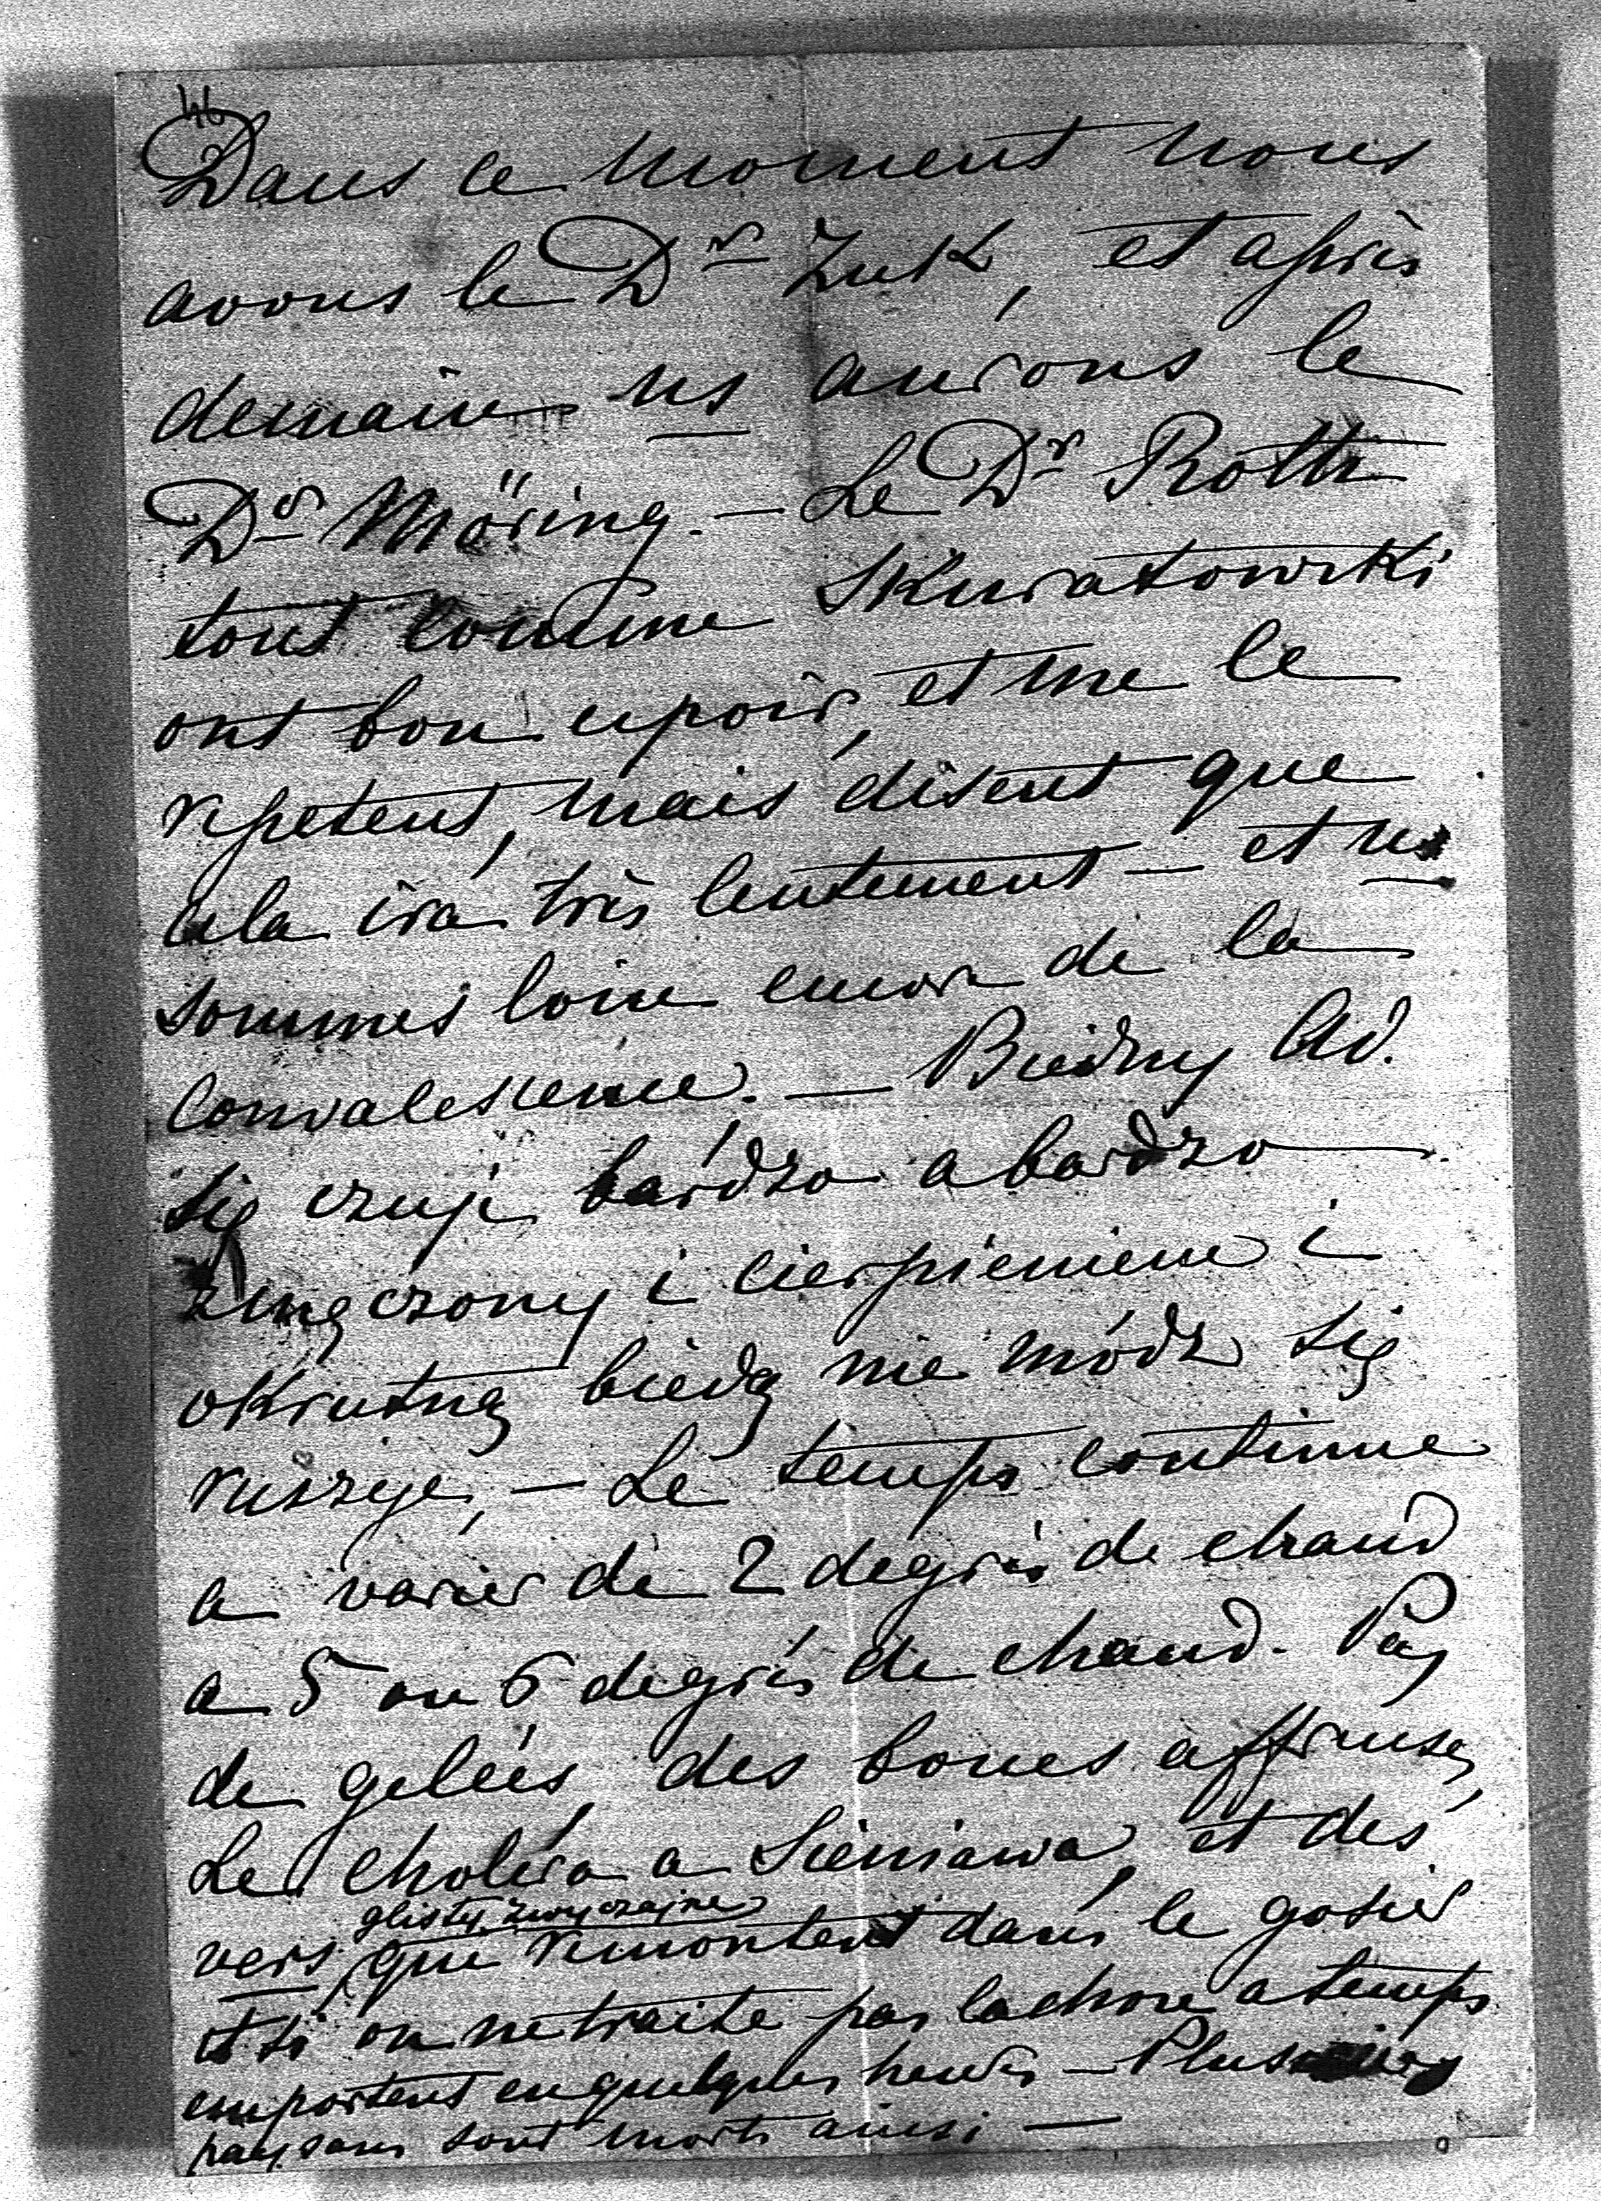 46
Dans ce moment nous
avons le Dr Zuk, et après
demain ns aurons le
Dr Möring. — Le Dr Roth
tout comme Skuratowski
ont bon espoir, et me le
repetent, mais disent que
cela ira très lentement — et ns
sommes loin encore de la
convalescence. — Biedny Ad.
się czuje bardzo a bardzo
zmęczony i cierpieniem i
okrutną biedą nie módz się
ruszyć, — Le temps continue
a varier de 2 degrés de chaud
a 5 ou 6 degrés de chaud. Pas
de gelées, des boues affreuses,
Le choléra a Sieniawa, et des
glisty zwyczajne
vers que remontent dans le gosier
et si on ne traite pas la chose a temps
emportent en quelques heures — Plusieurs
paysans sont morts ainsi —